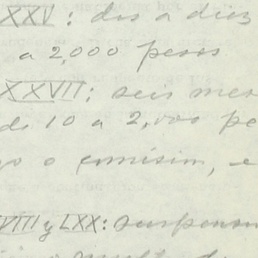 XXV: dos a diez
a 2,000 pesos
XXVII: seis mes
de 10 a 2,000 pe
go o comisión, e
VIII y LXX: suspens